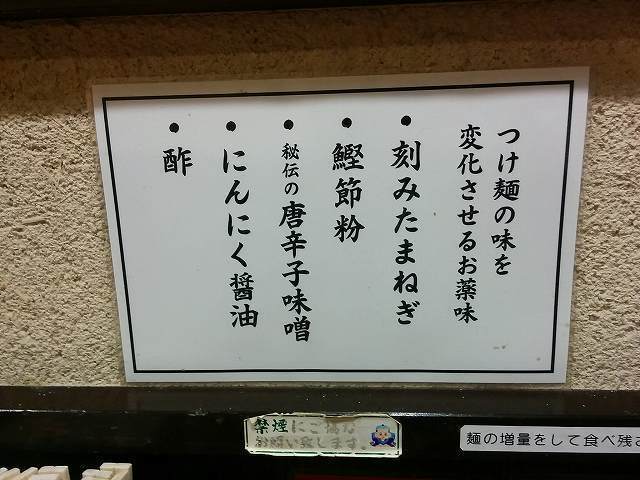 つけ麺の味を
変化させるお薬味
• 刻みたまねぎ
• 鰹節粉
• 秘伝の唐辛子味噌
• にんにく醤油
• 酢
禁煙にご協力
お願い致します。
麺の増量をして食べ残さ